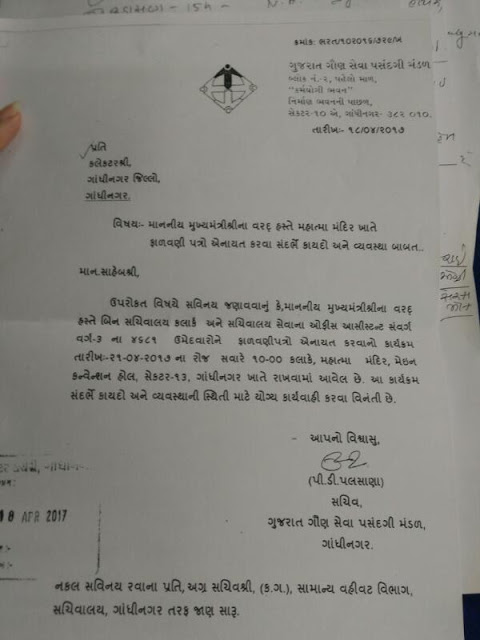 ક્રમાંક: ભરત/૧૦૨૦૧૬/૭૨૯/ખ
ગુજરાત ગૌણ સેવા પસંદગી મંડળ
બ્લોક નં.-૨, પહેલો માળ,
"કર્મયોગી ભવન"
નિર્માણ ભવનની પાછળ,
સેક્ટર-૧૦ એ, ગાંધીનગર-૩૮૨ ૦૧૦.
તારીખ:-૧૮/૦૪/૨૦૧૭
પ્રતિ
કલેક્ટરશ્રી,
ગાંધીનગર જિલ્લો,
ગાંધીનગર.
વિષય:- માનનીય મુખ્યમંત્રીશ્રીના વરદ્ હસ્તે મહાત્મા મંદિર ખાતે
ફાળવણી પત્રો એનાયત કરવા સંદર્ભે કાયદો અને વ્યવસ્થા બાબત..
માન.સાહેબશ્રી,
ઉપરોકત વિષયે સવિનય જણાવવાનું કે,માનનીય મુખ્યમંત્રીશ્રીના વરદ્
હસ્તે બિન સચિવાલય ક્લાર્ક અને સચિવાલય સેવાના ઓફીસ આસીસ્ટન્ટ સંવર્ગ
વર્ગ-૩ ના ૪૬૮૧ ઉમેદવારોને ફાળવણીપત્રો એનાયત કરવાનો કાર્યક્રમ
તારીખ:-૨૧-૦૪-૨૦૧૭ ના રોજ સવારે ૧૦-૦૦ કલાકે, મહાત્મા મંદિર, મેઇન
કન્વેન્શન હોલ, સેક્ટર-૧૩, ગાંધીનગર ખાતે રાખવામાં આવેલ છે. આ કાર્યક્રમ
સંદર્ભે કાયદો અને વ્યવસ્થાની સ્થિતી માટે યોગ્ય કાર્યવાહી કરવા વિનંતી છે.
- આપનો વિશ્વાસુ,
(પી.ડી.પલસાણા)
સચિવ,
ગુજરાત ગૌણ સેવા પસંદગી મંડળ,
ગાંધીનગર.
18 APR 2017
નકલ સવિનય રવાના પ્રતિ, અગ્ર સચિવશ્રી, (ક.ગ.), સામાન્ય વહીવટ વિભાગ,
સચિવાલય, ગાંધીનગર તરફ જાણ સારૂ.